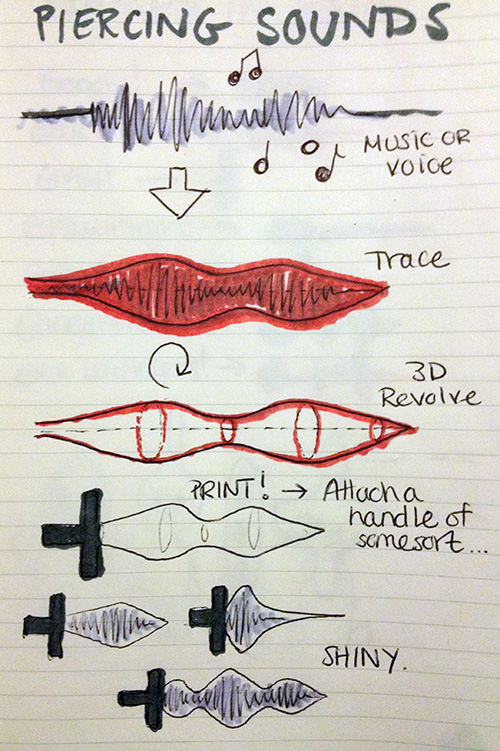 PIERCING SOUNDS
MUSIC OR
VOICE
Trace
3D
Revolve
PRINT! → Attach a
handle of
some sort...
SHINY.